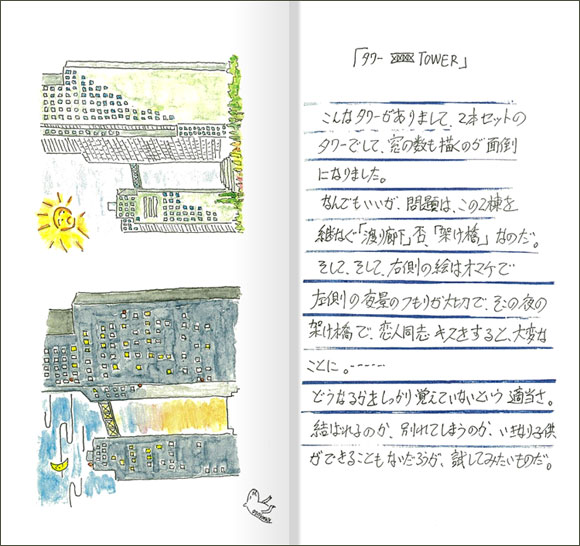 「タワー TOWER」
こんなタワーがありまして、2本セットの
タワーでして、窓の数も描くのが面倒
になりました。
なんでもいいが、問題は、この2棟を
継なぐ「渡り廊下」否、「架け橋」なのだ。
そして、そして、右側の絵はオマケで
左側の夜景のつもりが大切で、その夜の
架け橋で、恋人同志キスをすると、大変な
ことに。------
どうなるかをしっかり覚えていないという適当さ。
結ばれるのか、別れてしまうのか、いきなり子供
ができることもないだろうが、試してみたいものだ。